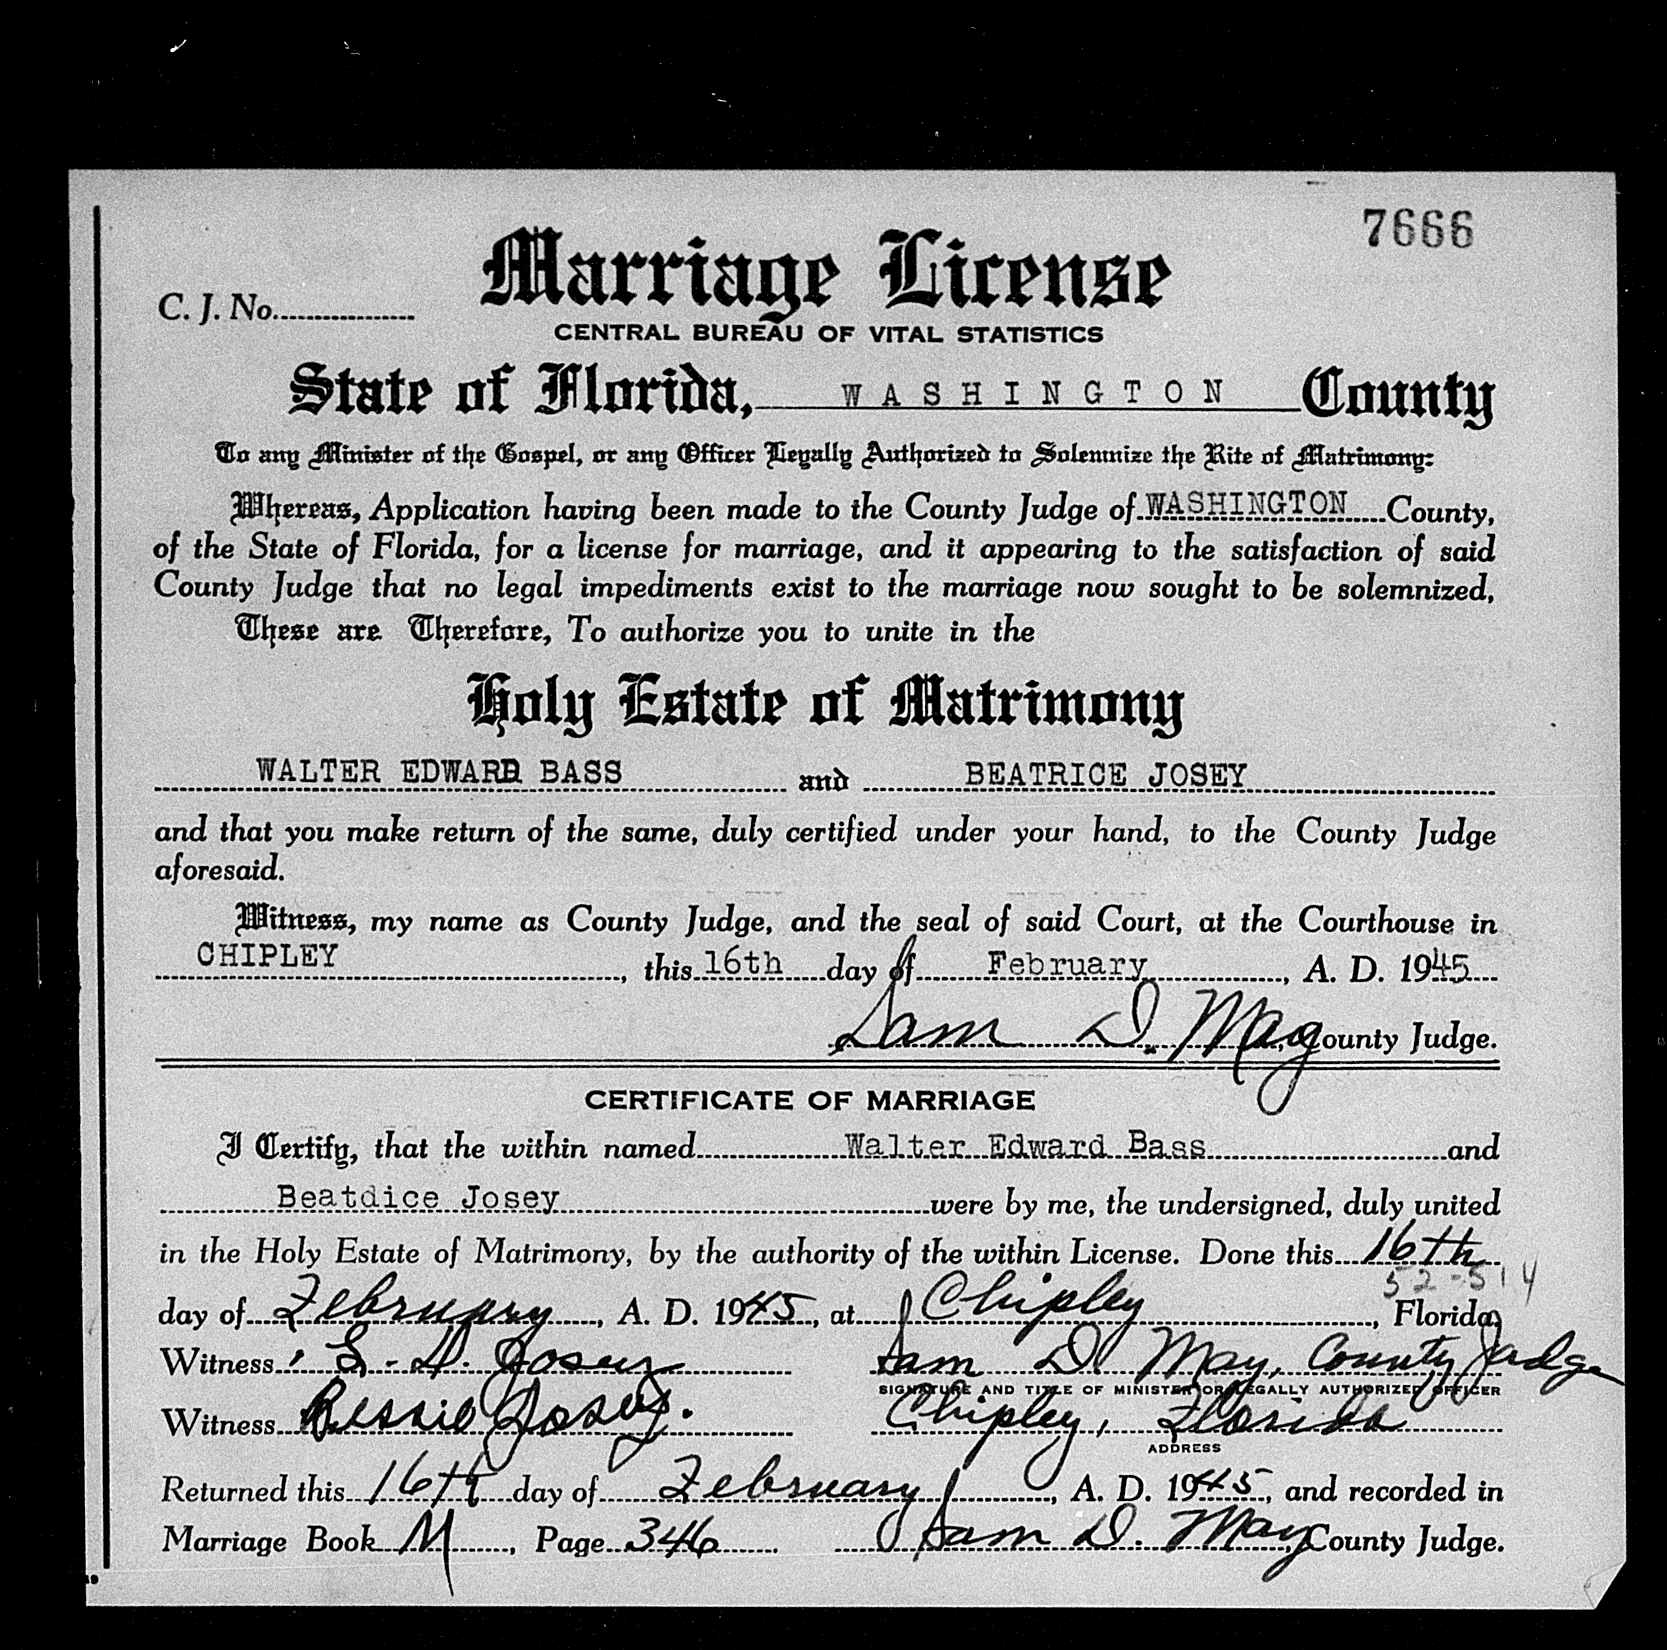 7666
Marriage License
C. J. No.
CENTRAL BUREAU OF VITAL STATISTICS
State of Florida, WASHINGTON County
To any Minister of the Gospel, or any Officer Legally Authorized to Solemnize the Rite of Matrimony:
Whereas, Application having been made to the County Judge of WASHINGTON County,
of the State of Florida, for a license for marriage, and it appearing to the satisfaction of said
County Judge that no legal impediments exist to the marriage now sought to be solemnized,
These are Therefore, To authorize you to unite in the
Holy Estate of Matrimony
WALTER EDWARD BASS and BEATRICE JOSEY
and that you make return of the same, duly certified under your hand, to the County Judge
aforesaid.
Witness, my name as County Judge, and the seal of said Court, at the Courthouse in
CHIPLEY, this 16th day of February, A. D. 1945
Sam D. May, County Judge.
CERTIFICATE OF MARRIAGE
I Certify, that the within named Walter Edward Bass and
Beatdice Josey were by me, the undersigned, duly united
in the Holy Estate of Matrimony, by the authority of the within License. Done this 16th
52-514
day of February, A. D. 1945, at Chipley, Florida,
Witness S. D. Josey Sam D. May, County Judge
SIGNATURE AND TITLE OF MINISTER OR LEGALLY AUTHORIZED OFFICER
Witness Bessie Josey. Chipley, Florida
ADDRESS
Returned this 16th day of February, A. D. 1945, and recorded in
Marriage Book M, Page 346 Sam D. May, County Judge.